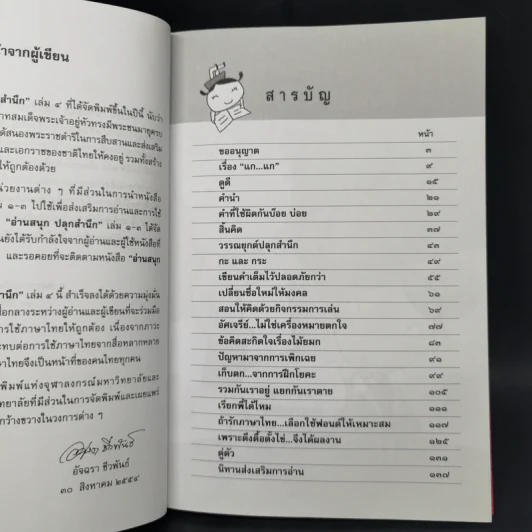 จากผู้เขียน
สำนึก” เล่ม ๔ ที่ได้จัดพิมพ์ขึ้นในปีนี้ นับว่า
าทสมเด็จพระเจ้าอยู่หัวทรงมีพระชนมายุครบ
ด้สนองพระราชดำริในการสืบสานและส่งเสริม
และเอกราชของชาติไทยให้คงอยู่ รวมทั้งสร้าง
ให้ถูกต้องด้วย
น่วยงานต่าง ๆ ที่มีส่วนในการนำหนังสือ
๑-๓ ไปใช้เพื่อส่งเสริมการอ่านและการใช้
“อ่านสนุก ปลุกสำนึก” เล่ม ๑-๓ ได้จัด
นยังได้รับกำลังใจจากผู้อ่านและผู้ใช้หนังสือที่
และรอคอยที่จะติดตามหนังสือ “อ่านสนุก
นึก” เล่ม ๔ นี้ สำเร็จลงได้ด้วยความมุ่งมั่น
สื่อกลางระหว่างผู้อ่านและผู้เขียนที่จะร่วมมือ
ารใช้ภาษาไทยให้ถูกต้อง เนื่องจากภาวะ
ะทบต่อการใช้ภาษาไทยจากสื่อหลากหลาย
าไทยจึงเป็นหน้าที่ของคนไทยทุกคน
พิมพ์แห่งจุฬาลงกรณ์มหาวิทยาลัยและ
ทยาลัยที่มีส่วนในการจัดพิมพ์และเผยแพร่
กว้างขวางในวงการต่าง ๆ
อัจฉรา ชีวพันธ์
๓๐ สิงหาคม ๒๕๕๔
สารบัญ
หน้า
ขออนุญาต ๓
เรื่อง “แก...แก” ๙
ดูดี ๑๕
คำนำ ๒๑
คำที่ใช้ผิดกันบ๊อย บ่อย ๒๙
สิ้นคิด ๓๗
วรรณยุกต์ปลุกสำนึก ๔๓
กะ และ กระ ๔๙
เขียนคำเต็มไว้ปลอดภัยกว่า ๕๕
เปลี่ยนชื่อใหม่ให้มงคล ๖๑
สอนให้คิดด้วยกิจกรรมการเล่น ๖๙
อัศเจรีย์...ไม่ใช่เครื่องหมายตกใจ ๗๗
ข้อคิดสะกิดใจเรื่องไม้ยมก ๘๓
ปัญหามาจากการเพิกเฉย ๙๑
เก็บตก...จากการฝึกโยคะ ๙๙
รวมกันเราอยู่ แยกกันเราตาย ๑๐๕
เรียกพี่ได้ไหม ๑๑๑
ถ้ารักภาษาไทย...เลือกใช้ฟอนต์ให้เหมาะสม ๑๑๗
เพราะดึงดื้อตั้งไข่...จึงได้ผลงาน ๑๒๕
ตู่ตัว ๑๓๑
นิทานส่งเสริมการอ่าน ๑๓๗